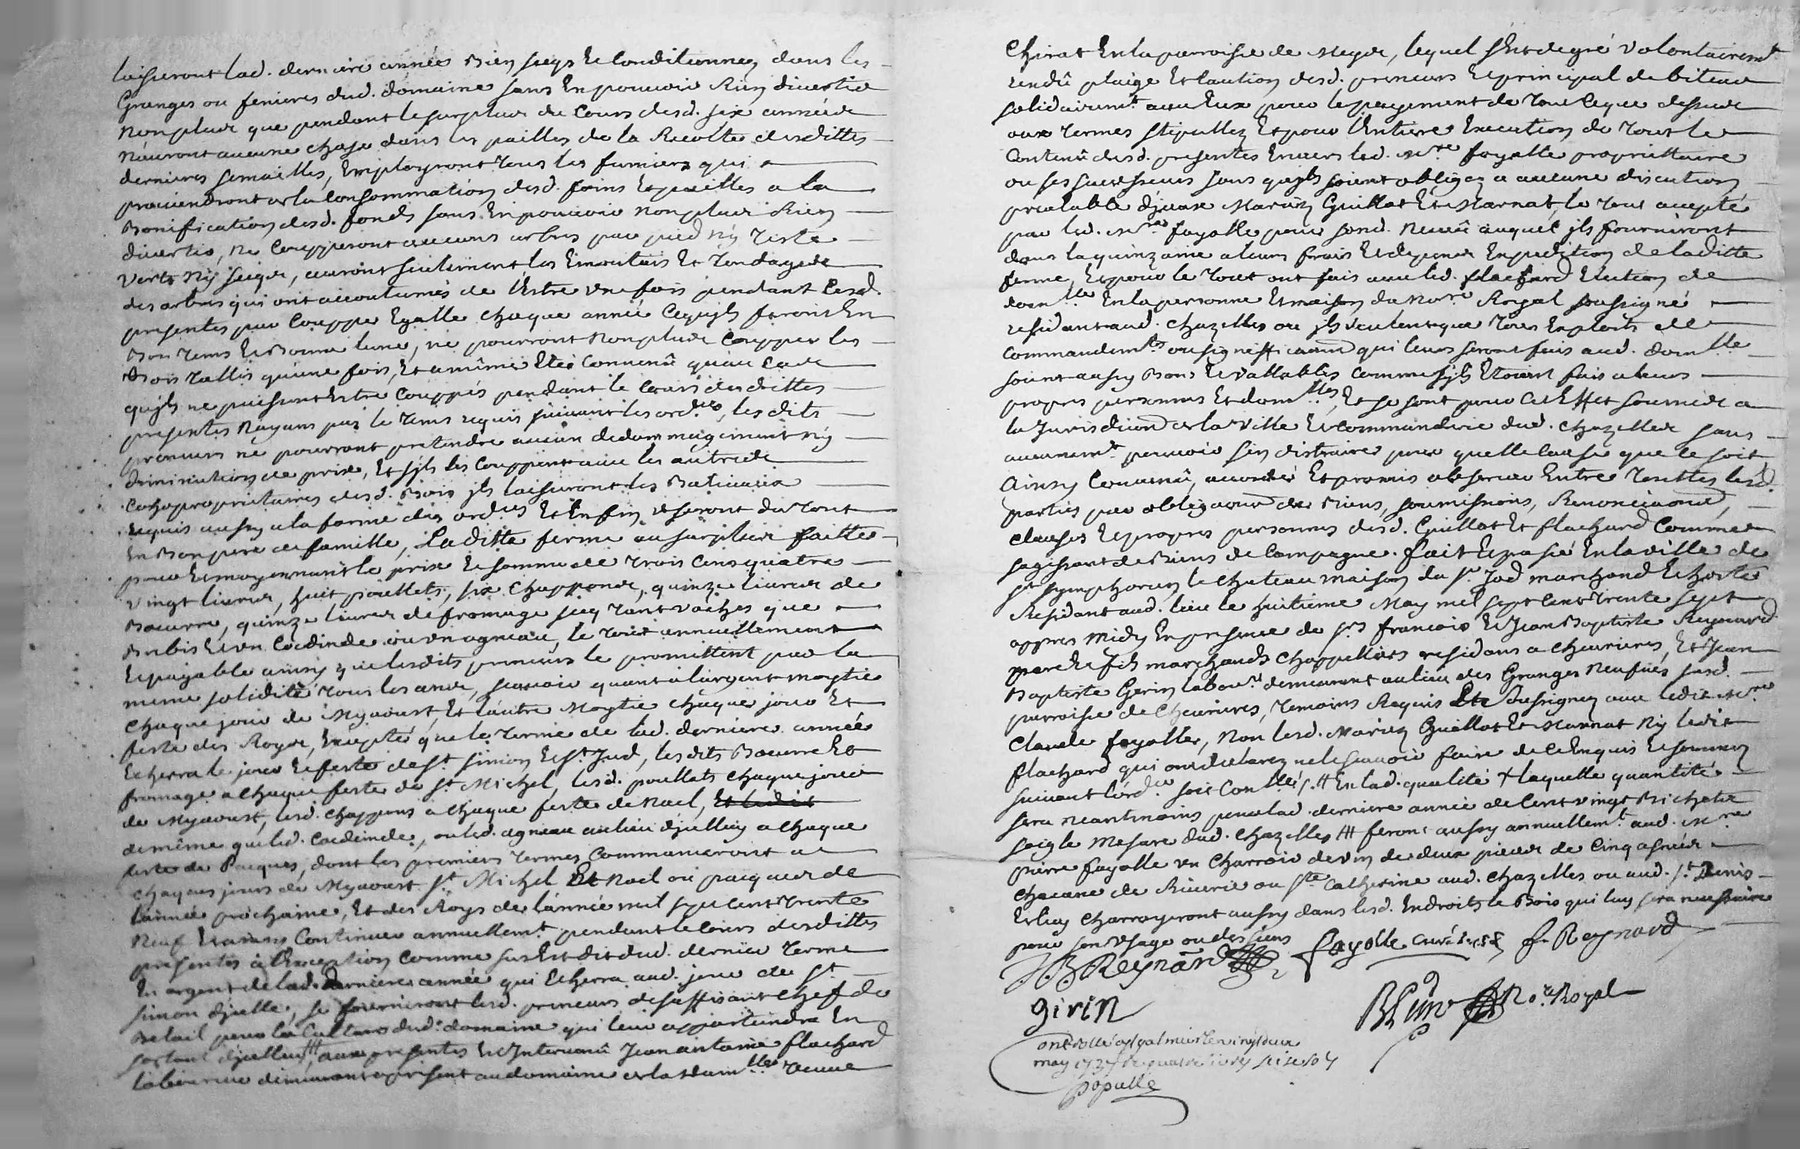 laisseront lad. derniere année bien secqs et conditionnez dans les
Granges ou fenieres dud. domaine sans en pouvoir Rien divertir
Non plus que pendant le surplus du cours desd. six années
N'auront aucune chose dans les pailles de la Recolte desdittes
dernieres semailles, Employront tous les fumiers qui
proviendront de la Consommation desd. foins Et pailles a la
Bonification desd. fonds sans En pouvoir non plus Rien
divertir, ne Coupperont aucuns arbres par pied Ny teste
verts Ny secqs, auront seulement les Emontais Et tondages
des arbres qui ont accoutumés de l'Estre une fois pendant lesd.
presentes par Couppe Egalle chaque année Ce qu'ils feront En
Bon tems Et Bonne lune, ne pourront Non plus Coupper les
Bois taillis qu'une fois, Et a même Eté Convenu qu'au cas
qu'ils ne puissent Estre Couppés pendant le Cours desdittes
presentes N'ayant pas le tems requis suivant les ordces, les dits
preneurs ne pourront pretendre aucun dedommagement Ny
diminution de prix, Et s'ils les Couppent avec les autres
Coproprietaires desd. Bois ils laisseront les Balivaux
Requis aussy a la forme des ordces Et Enfin useront du tout
En Bon pere de famille, Laditte ferme au surplus faitte
pour Et moyennant le prix Et somme de trois Cens quatre
vingt livres, huit poullets, six Chappons, quinze livres de
Bœurre, quinze livres de fromage secq tant vaches que
Brebis Et un Codinde ou un agneau, le tout annuellement
Et payable ainsy que lesdits preneurs le promettent par la
meme solidité tous les ans, scavoir quant a l'argent moytié
Chaque jour de Myaoust, Et l'autre Moytié chaque jour Et
feste des Roys, Excepté que le terme de lad. derniere année
Echerra le jour Et feste de St. Simon Et St. Jud, les dits Bœurre Et
fromage a chaque feste de St. Michel, lesd. poullets chaque jour
de Myaoust, lesd. chappons a chaque feste de Noel, Et ledit
de même que led. Codeinde, ou led. agneau au lieu d'jcelluy a chaque
feste de Pacques, dont les premiers termes Commanceront
chaques jours de Myaoust St. Michel Et Noel ou pacques de
l'année prochaine, Et des Roys de l'année mil sept Cent trente
Neuf Et ainsy Continuer annuellemt. pendant le Cours desdittes
presentes a l'Exception comme sus Est dit dud. dernier terme
En argent de lad. derniere année qui Echerra aud. jour de St.
Simon d'jcelle, se fourniront lesd. preneurs de suffisant chef de
Betail pour la Culture dud. domaine qui leur appartiendra En
sortant d'jcelluy, aux presentes Est Intervenu Jean antoine flachard
laboureur demeurant a present au domaine de la Damlle veuve
Chirat En la parroisse de Meys, lequel s'Est de gré volontairemt.
rendu plaige Et Caution desd. preneurs Et principal debiteur
solidairemt. avec Eux pour le payement de tout Ce que dessus
aux termes stipullez Et pour l'Entiere Execution de tout le
Contenu desd. presentes Envers led. Mre fayolle proprietaire
ou ses successeurs sans qu'ils soient obligez a aucune discution
prealable d'jceux Mariez Guillot Et Marnat, le tout accepté
par led. Mre fayolle pour sond. Neveu auquel jls fourniront
dans la quinzaine a leurs frais Et depens Expedition de laditte
ferme, Et pour le tout ont fais avec led. flachard Election de
domlle En la personne Et maison du Nore Royal soussigné
residant aud. Chazelles ou jls veulent que tous Exploits de
Commandemts. ou signiffications qui leurs seront fais aud. domlle
soient aussy Bons Et vallables Comme s'jls Etoient fais a leurs
propres personnes Et domlles, Et se sont pour Cet Effet soumis a
la Jurisdiction de la ville Et Commanderie dud. Chazelles sans
aucunemt. pouvoir s'en distraire pour quelle Cause que Ce soit
Ainsy Convenu, accordé Et promis observer Entre touttes lesd.
parties par obligation de Biens, soumissions, Renonciations,
clauses Et propres personnes desd. Guillot Et flachard Comme
s'agissant de Biens de Campagne. fait Et passé En la ville de
St. Symphorien le chateau maison du Sr. Jod marchand Et hoste
Residant aud. lieu le huitieme May mil sept Cent trente sept
appres Midy En presence de Srs. francois Et Jean Baptiste Reynard
pere Et fils marchands Chappelliers residans a Chevrieres, Et Jean
Baptiste Gerin labour. demeurant au lieu des Granges Neufves susd.
parroisse de Chevrieres, temoins Requis Et soussignez avec ledit Mre
Claude fayolle, Non lesd. Mariez Guillot Et Marnat Ny ledit
flachard qui ont declarez ne le scavoir faire de Ce Enquis Et sommez
suivant l'ordce soit Conllé. En lad. qualité + laquelle quantité
sera neantmoins pour lad. derniere année de Cent vingt Bichets
seigle mesure dud. Chazelles feront aussy annuellemt. aud. Mre
pierre fayolle un Charroir de vin de deux pieces de Cinq asnées
chacune de Riverie ou Ste. Catherine aud. Chazelles ou aud. St. Denis
Et luy Charroyeront aussy dans lesd. Endroits le Bois qui luy sera necessaire
pour son usage ou des siens
J B Reynard fayolle curé f. Reynard
girin No.re Royal
may 1737
populle